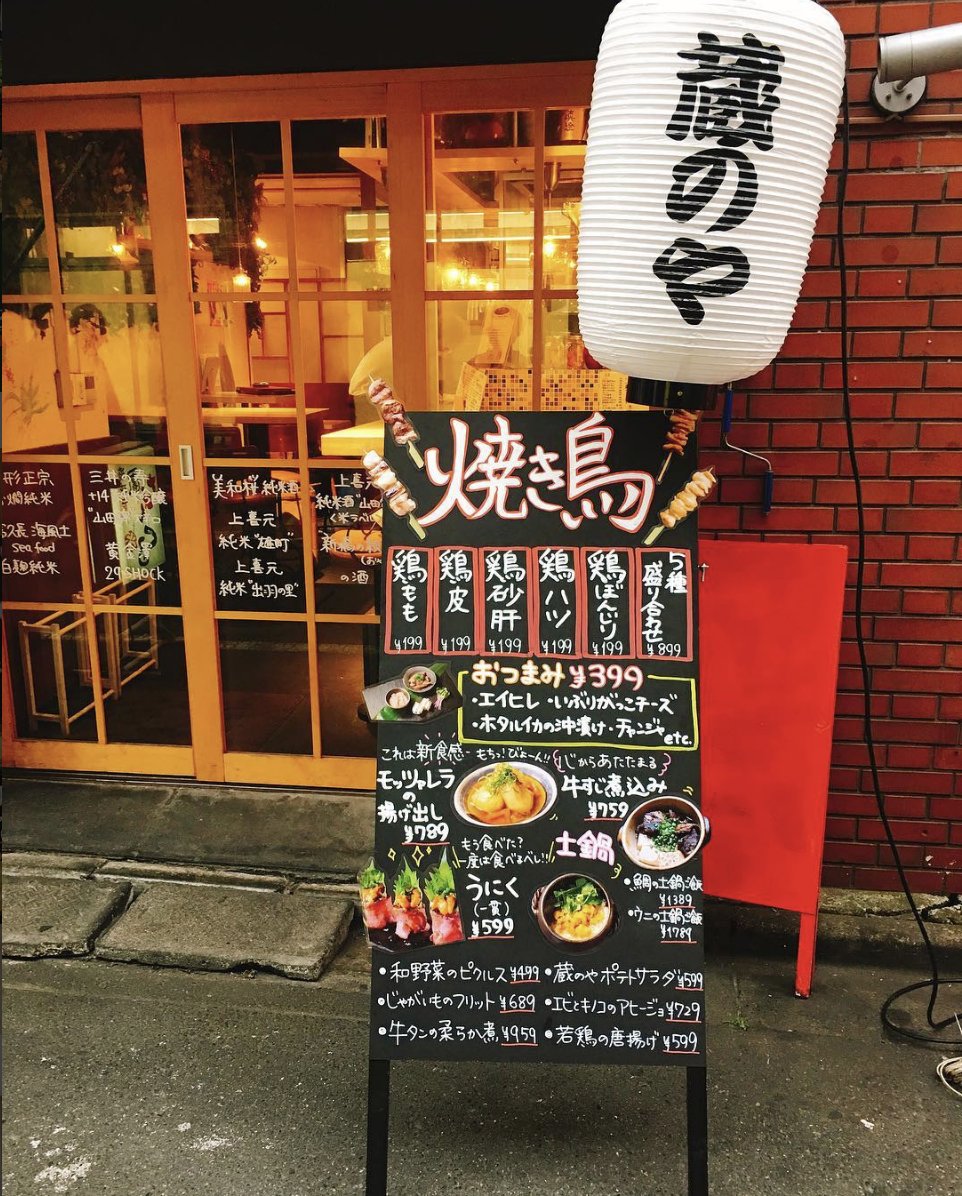 蔵のや
焼き鳥
鶏もも ¥199
鶏皮 ¥199
鶏砂肝 ¥199
鶏ハツ ¥199
鶏ぼんじり ¥199
5種盛り合わせ ¥899
おつまみ ¥399
・エイヒレ ・いぶりがっこチーズ
・ホタルイカの沖漬け・チャンジャ etc.
これは新食感- もちっ!びよーん!!
モッツァレラの揚げ出し
¥789
じからあたたまる
牛すじ煮込み
¥759
もう食べた?
一度は食べるべし!!
うにく
(一貫)
¥599
土鍋
・鯛の土鍋ご飯
¥1389
・ウニの土鍋ご飯
¥1789
・和野菜のピクルス ¥499
・蔵のやポテトサラダ ¥599
・じゃがいものフリット ¥689
・エビとキノコのアヒージョ ¥729
・牛タンの柔らか煮 ¥959
・若鶏の唐揚げ ¥599
形正宗
燗純米
久長 海風土
sea food
白麹純米
三井の寿
+14
"山田
黄金澤
29SHOCK
美和桜 純米酒
上喜元
純米"雄町"
上喜元
純米"出羽の里"
上喜元
純米酒"山田
の酒